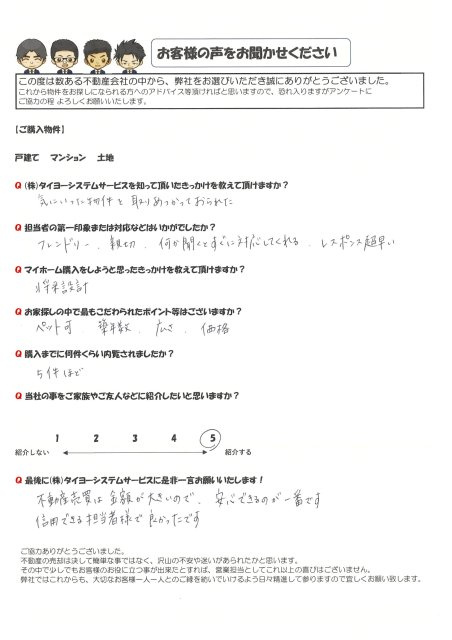 お客様の声をお聞かせください
この度は数ある不動産会社の中から、弊社をお選びいただき誠にありがとうございました。
これから物件をお探しになられる方へのアドバイス等頂ければと思いますので、恐れ入りますがアンケートに
ご協力の程 よろしくお願いいたします。
【ご購入物件】
戸建て マンション 土地
Q (株)タイヨーシステムサービスを知って頂いたきっかけを教えて頂けますか？
気にいった物件を取りあつかっておられた
Q 担当者の第一印象または対応などはいかがでしたか？
フレンドリー、親切、何か聞くとすぐに対応してくれる、レスポンス超早い
Q マイホーム購入をしようと思ったきっかけを教えて頂けますか？
将来設計
Q お家探しの中で最もこだわられたポイント等はございますか？
ペット可、築年数、広さ、価格
Q 購入までに何件くらい内覧されましたか？
5件ほど
Q 当社の事をご家族やご友人などに紹介したいと思いますか？
1 2 3 4 5
紹介しない 紹介する
Q 最後に(株)タイヨーシステムサービスに是非一言お願いいたします！
不動産売買は金額が大きいので、安心できるのが一番です
信用できる担当者様で良かったです
ご協力ありがとうございました。
不動産の売却は決して簡単な事ではなく、沢山の不安や迷いがあられたかと思います。
その中で少しでもお客様のお役に立つ事が出来たとすれば、営業担当としてこれ以上の喜びはございません。
弊社ではこれからも、大切なお客様一人一人とのご縁を紡いでいけるよう日々精進して参りますので宜しくお願い致します。